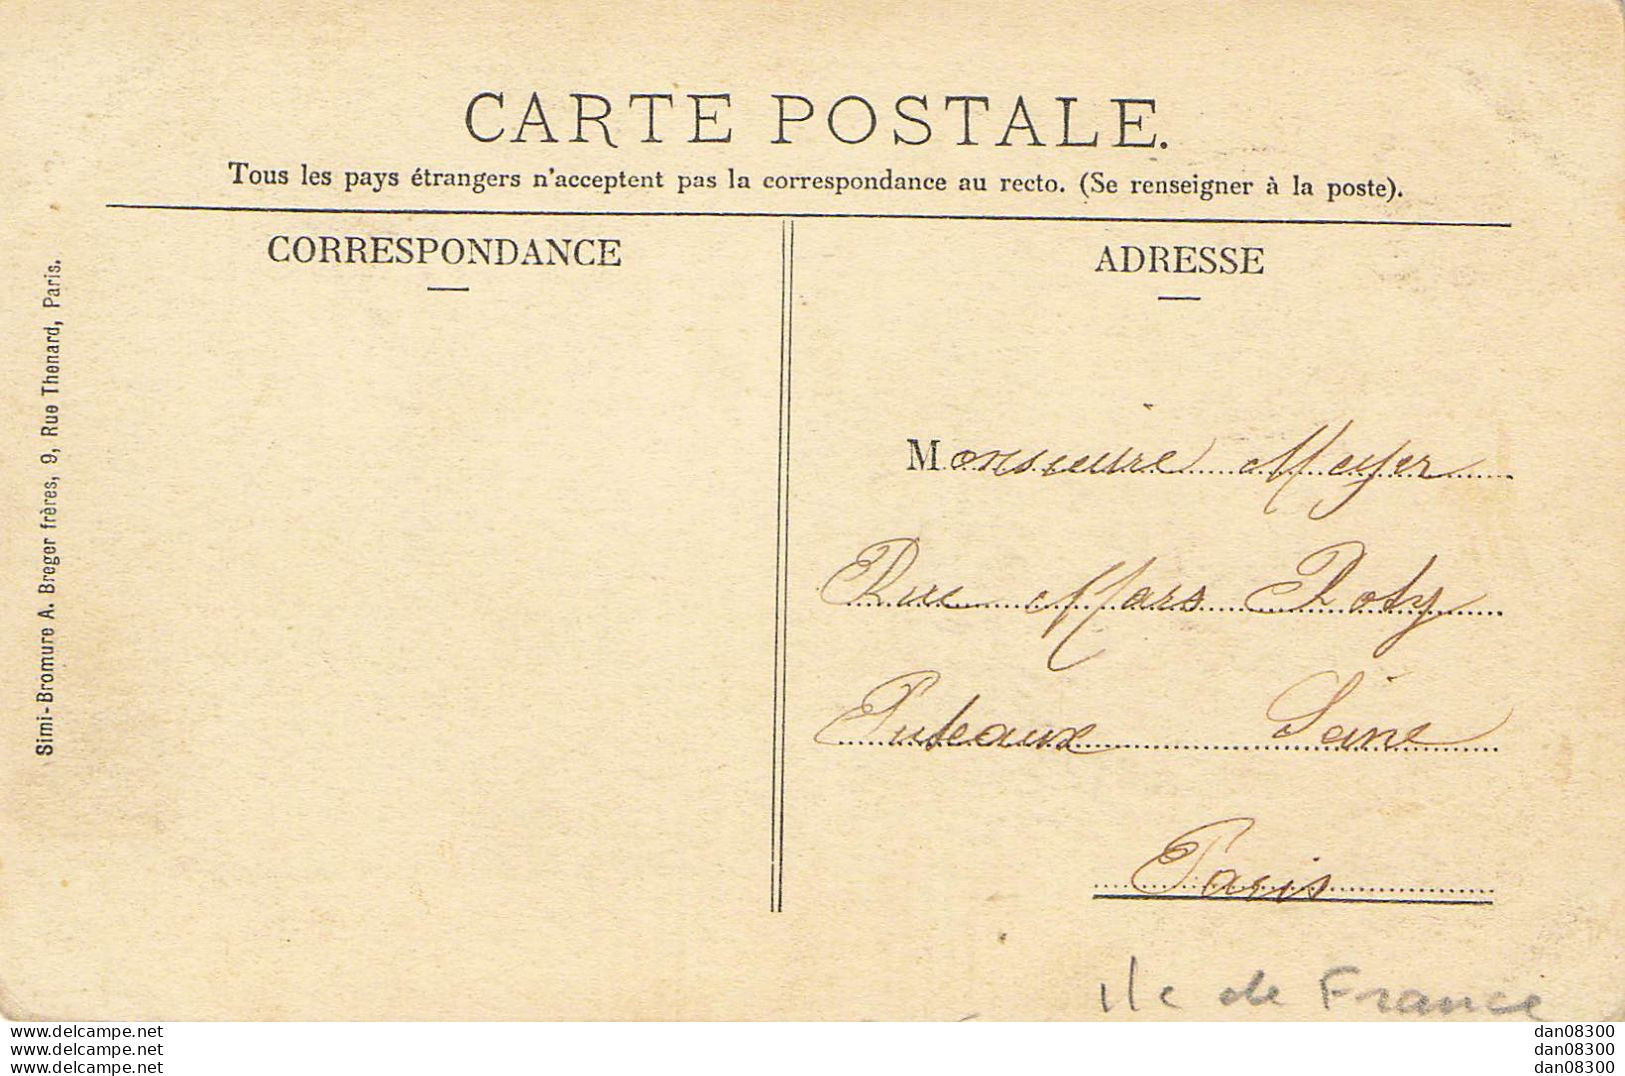 CARTE POSTALE.
Tous les pays étrangers n'acceptent pas la correspondance au recto. (Se renseigner à la poste).
CORRESPONDANCE
ADRESSE
Simi-Bromure A. Breger frères, 9, Rue Thenard, Paris.
Monsieure Meyer
Rue Mars Roty
Puteaux Seine
Paris
Ile de France
www.delcampe.net
www.delcampe.net
www.delcampe.net
dan08300
dan08300
dan08300